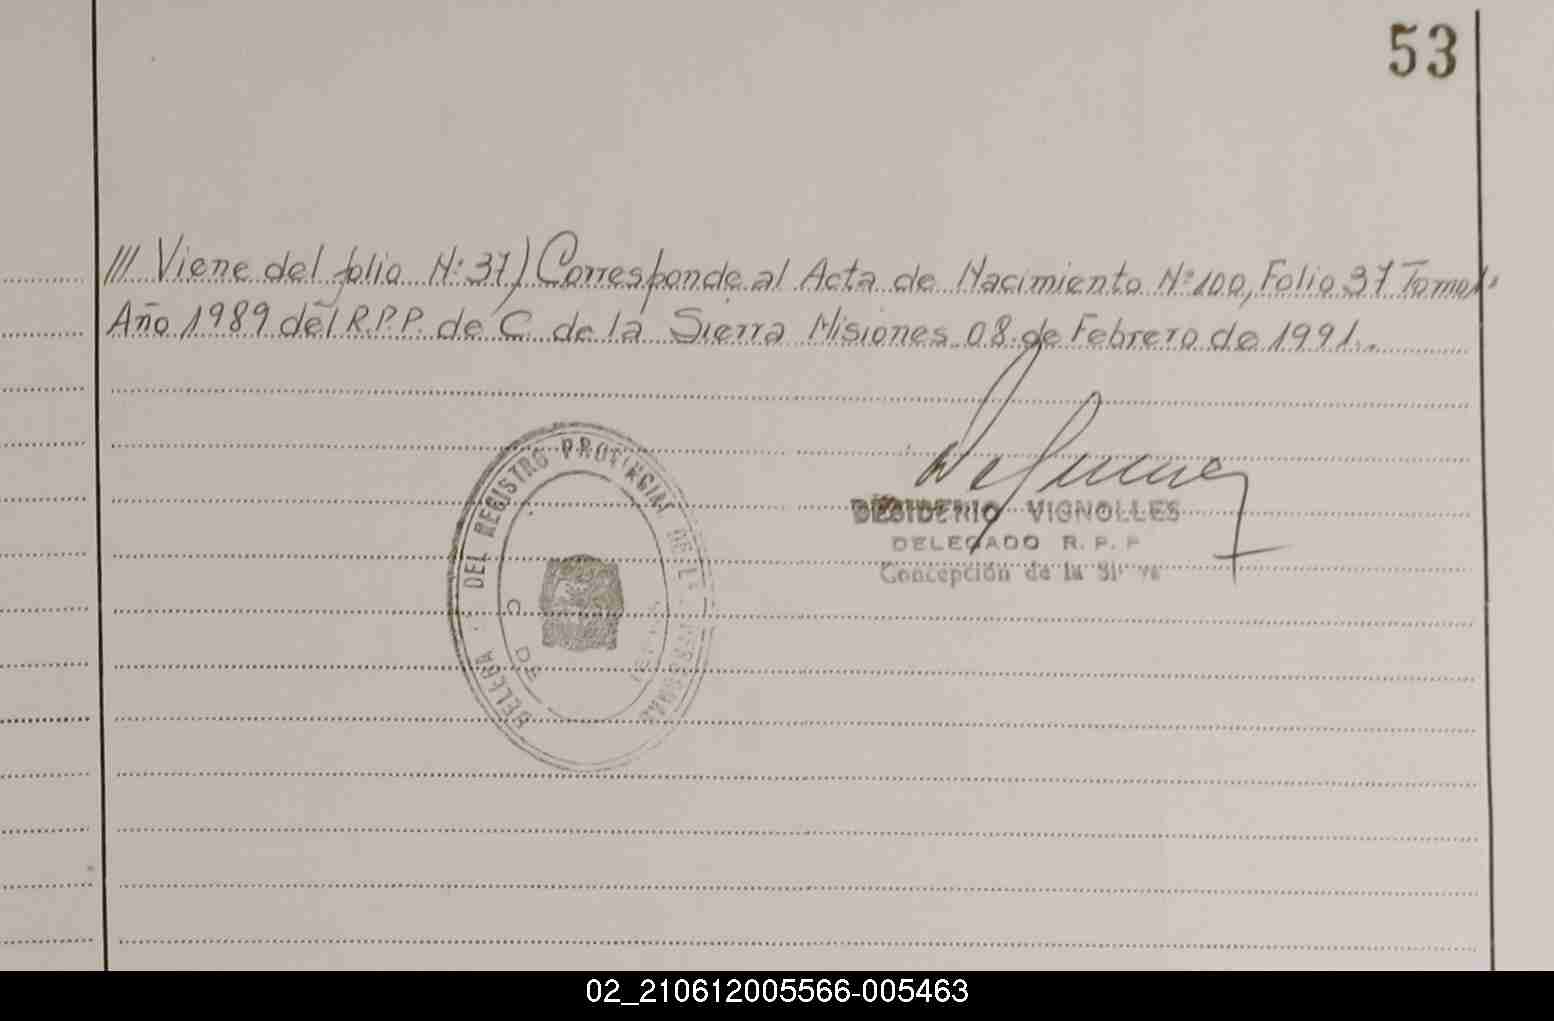 53
/// Viene del folio N: 37) Corresponde al Acta de Nacimiento Nº 100, Folio 37 Tomo
Año 1989 del R.P.P. de C. de la Sierra Misiones 08 de Febrero de 1991.
DEL REGISTRO PROVINCIAL DE
DESIDERIO VIGNOLLES
DELEGADO R. P. P
Concepción de la
02_210612005566-005463